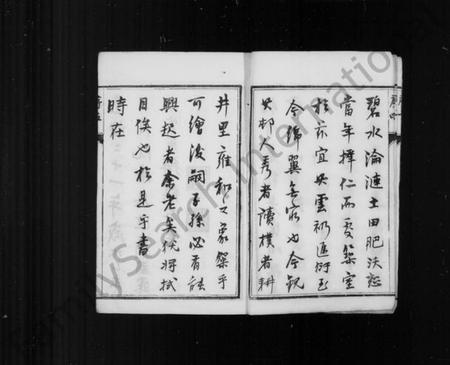 碧水淪漣土田肥沃想
當年擇仁而處築室
於亦宜其雲礽延衍至
今綿翼無窮也今觀
其邨人秀者讀樸者耕
井里雍和之象幾乎
可繪後嗣子孫必有誌
興起者余老矣伏將拭
目俟也於是乎書
時在
FamilySearch International